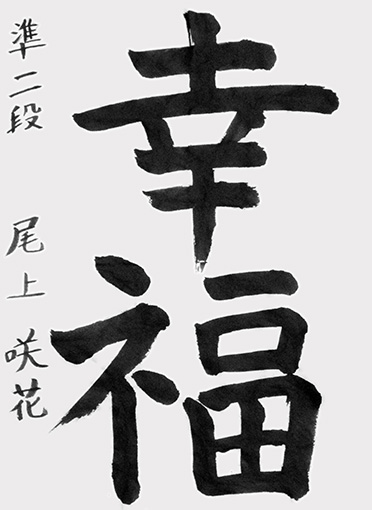 幸福
準二段 尾上 咲花